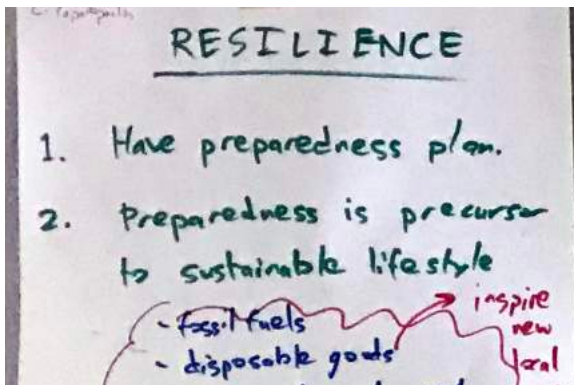 RESILIENCE
1. Have preparedness plan.
2. Preparedness is precursor
to sustainable lifestyle
- fossil fuels
- disposable goods
inspire
new
local